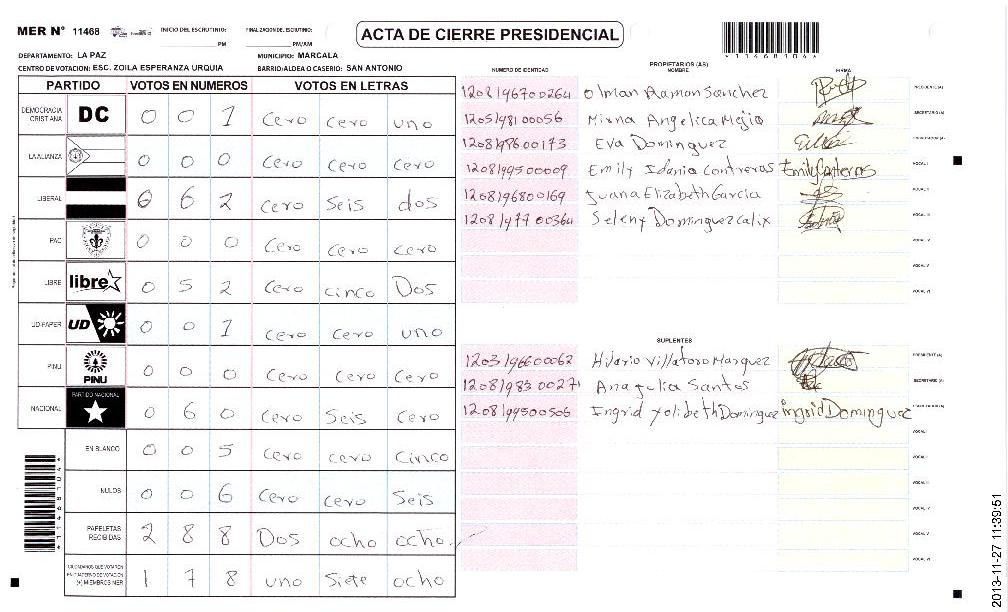 MER N° 11468 INICIO DEL ESCRUTINIO: PM FINALIZACION DE. ESCRUTINIO: PM/AM
ACTA DE CIERRE PRESIDENCIAL
*11468104*
DEPARTAMENTO: LA PAZ MUNICIPIO: MARCALA
CENTRO DE VOTACION: ESC. ZOILA ESPERANZA URQUIA BARRIO/ALDEA O CASERIO: SAN ANTONIO
PARTIDO VOTOS EN NUMEROS VOTOS EN LETRAS
DEMOCRACIA CRISTIANA DC 0 0 1 Cero cero uno
LA ALIANZA 0 0 0 Cero Cero Cero
LIBERAL 0 6 2 Cero Seis dos
PAC 0 0 0 Cero Cero Cero
LIBRE libre 0 5 2 Cero Cinco Dos
UD/FAPER UD 0 0 1 Cero Cero uno
PINU PINU 0 0 0 Cero Cero Cero
NACIONAL PARTIDO NACIONAL 0 6 0 Cero Seis Cero
EN BLANCO 0 0 5 Cero cero Cinco
NULOS 0 0 6 Cero Cero Seis
PAPELETAS RECIBIDAS 2 8 8 Dos ocho ocho
CIUDADANOS QUE VOTARON EN CUADERNO DE VOTACION (+) MIEMBROS MER 1 7 8 uno Siete ocho
PROPIETARIOS (AS)
NUMERO DE IDENTIDAD NOMBRE FIRMA
1208196700264 Olman Ramon Sanchez PRESIDENTE(A)
1205198100056 Mirna Angelica Mejia SECRETARIO (A)
1208198600173 Eva Dominguez ESCRUTADOR (A)
1208199500009 Emily Idania Contreras Emily Contreras VOCAL I
1208196800169 Juana Elizabeth Garcia VOCAL II
1208197700364 Seleny Dominguez Calix VOCAL III
VOCAL IV
VOCAL V
VOCAL VI
SUPLENTES
1203196600062 Hilario Villatoro Marquez PRESIDENTE (A)
1208198300271 Ana Julia Santos SECRETARIO (A)
1208199500506 Ingrid Yolibeth Dominguez ingrid Dominguez ESCRUTADOR (A)
VOCAL I
VOCAL II
VOCAL III
VOCAL IV
VOCAL V
VOCAL VI
2013-11-27 11:39:51